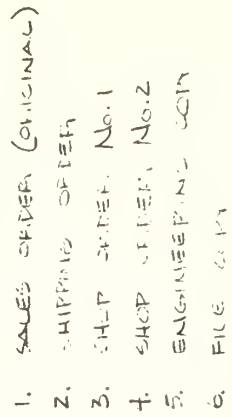 1. SALES ORDER (ORIGINAL)
2. SHIPPING ORDER
3. SHOP ORDER No. 1
4. SHOP ORDER No. 2
5. ENGINEERING COPY
6. FILE COPY